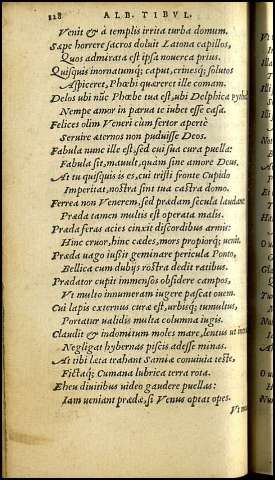 128 ALB. TIBVL.
Venit & à templis irrita turba domum.
Sæpe horrere sacros doluit Latona capillos,
Quos admirata est ipsa nouerca prius.
Quisquis inornatumq; caput, crinesq; solutos
Aspiceret, Phœbi quæreret ille comam.
Delos ubi nũc Phœbe tua est, ubi Delphica
Nempe amor in parua te iubet esse casa.
Felices olim Veneri cùm fertur apertè
Seruire æternos non puduisse Deos.
Fabula nunc ille est, sed cui sua cura puella:
Fabula sit, mauult, quàm sine amore Deus,
At tu quisquis is es, cui tristi fronte Cupido
Imperitat, nostra sint tua castra domo.
Ferrea non Venerem, sed prædam secula laudant
Præda tamen multis est operata malis.
Præda feras acies cinxit discordibus armis:
Hinc cruor, hinc cædes, mors propiorq; uenit.
Præda uago iussit geminare pericula Ponto,
Bellica cum dubijs rostra dedit ratibus.
Prædator cupit immensos obsidere campos,
Vt multo innumeram iugere pascat ouem.
Cui lapis externus curæ est, urbisq; tumultus,
Portatur ualidis multa columna iugis.
Claudit & indomitum moles mare, lentus ut
Negligat hybernas piscis adesse minas.
At tibi læta trahant Samiæ conuiuia testæ,
Fictaq; Cumana lubrica terra rota.
Eheu diuitibus uideo gaudere puellas:
Iam ueniant prædæ, si Venus optat opes.